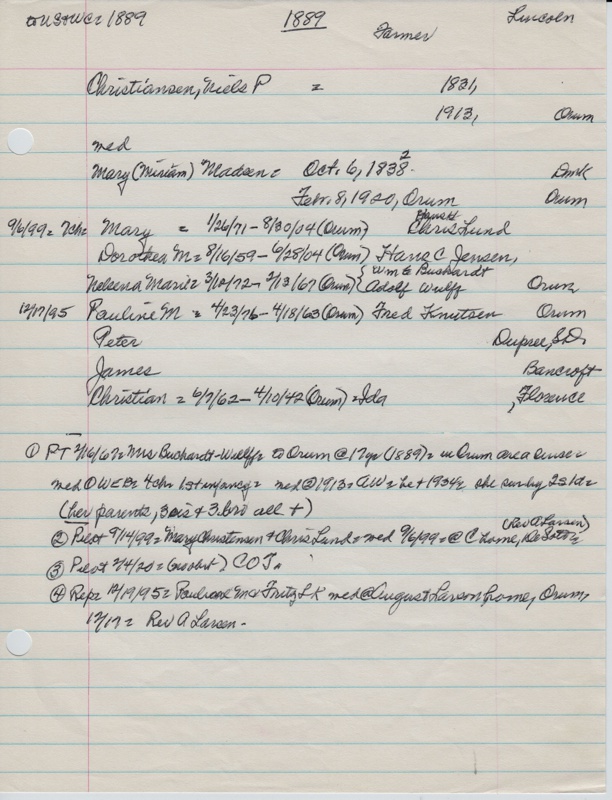 to US + WC = 1889 1889 Farmer Lincoln
Christiansen, Niels P = 1831,
1913, Orum
med
Mary (Miriam) Madsen = Oct. 6, 1838 2 Dmk
Febr. 8, 1920, Orum Orum
9/6/99 = 7ch = Mary = 1/26/71 - 8/30/04 (Orum) Chris Lund
Dorothea M = 8/16/59 - 6/28/04 (Orum) Hans C Jensen,
Nelsena Marie = 3/10/72 - 2/13/67 (Orum) { Wm E Bushardt
Adolf Wulff Orum
12/17/95 Pauline M = 4/23/76 - 4/18/63 (Orum) Fred Knutsen Orum
Peter Dupree, S.D.
James Bancroft
Christian = 6/7/62 - 4/10/42 (Orum) = Ida , Florence
① PT 2/16/67 = Mrs Buchardt-Wulff = to Orum @ 17 yr (1889) = in Orum area since =
med ① WEB = 4 chr 1st infancy = med @ 1913 = AW = he + 1934 = she surv by 2s 1d =
(her parents, 3 sis + 3 bro all +)
② Pilot 9/14/99 = Mary Christensen + Chris Lund = med 9/6/99 = @ C home, DeSoto = (Rev A Larsen)
③ Pilot 2/4/20 = (no obit) COT.
④ Rep = 12/19/95 = Pauline M + Fritz L K med @ August Larson home, Orum,
12/17 = Rev A Larsen.